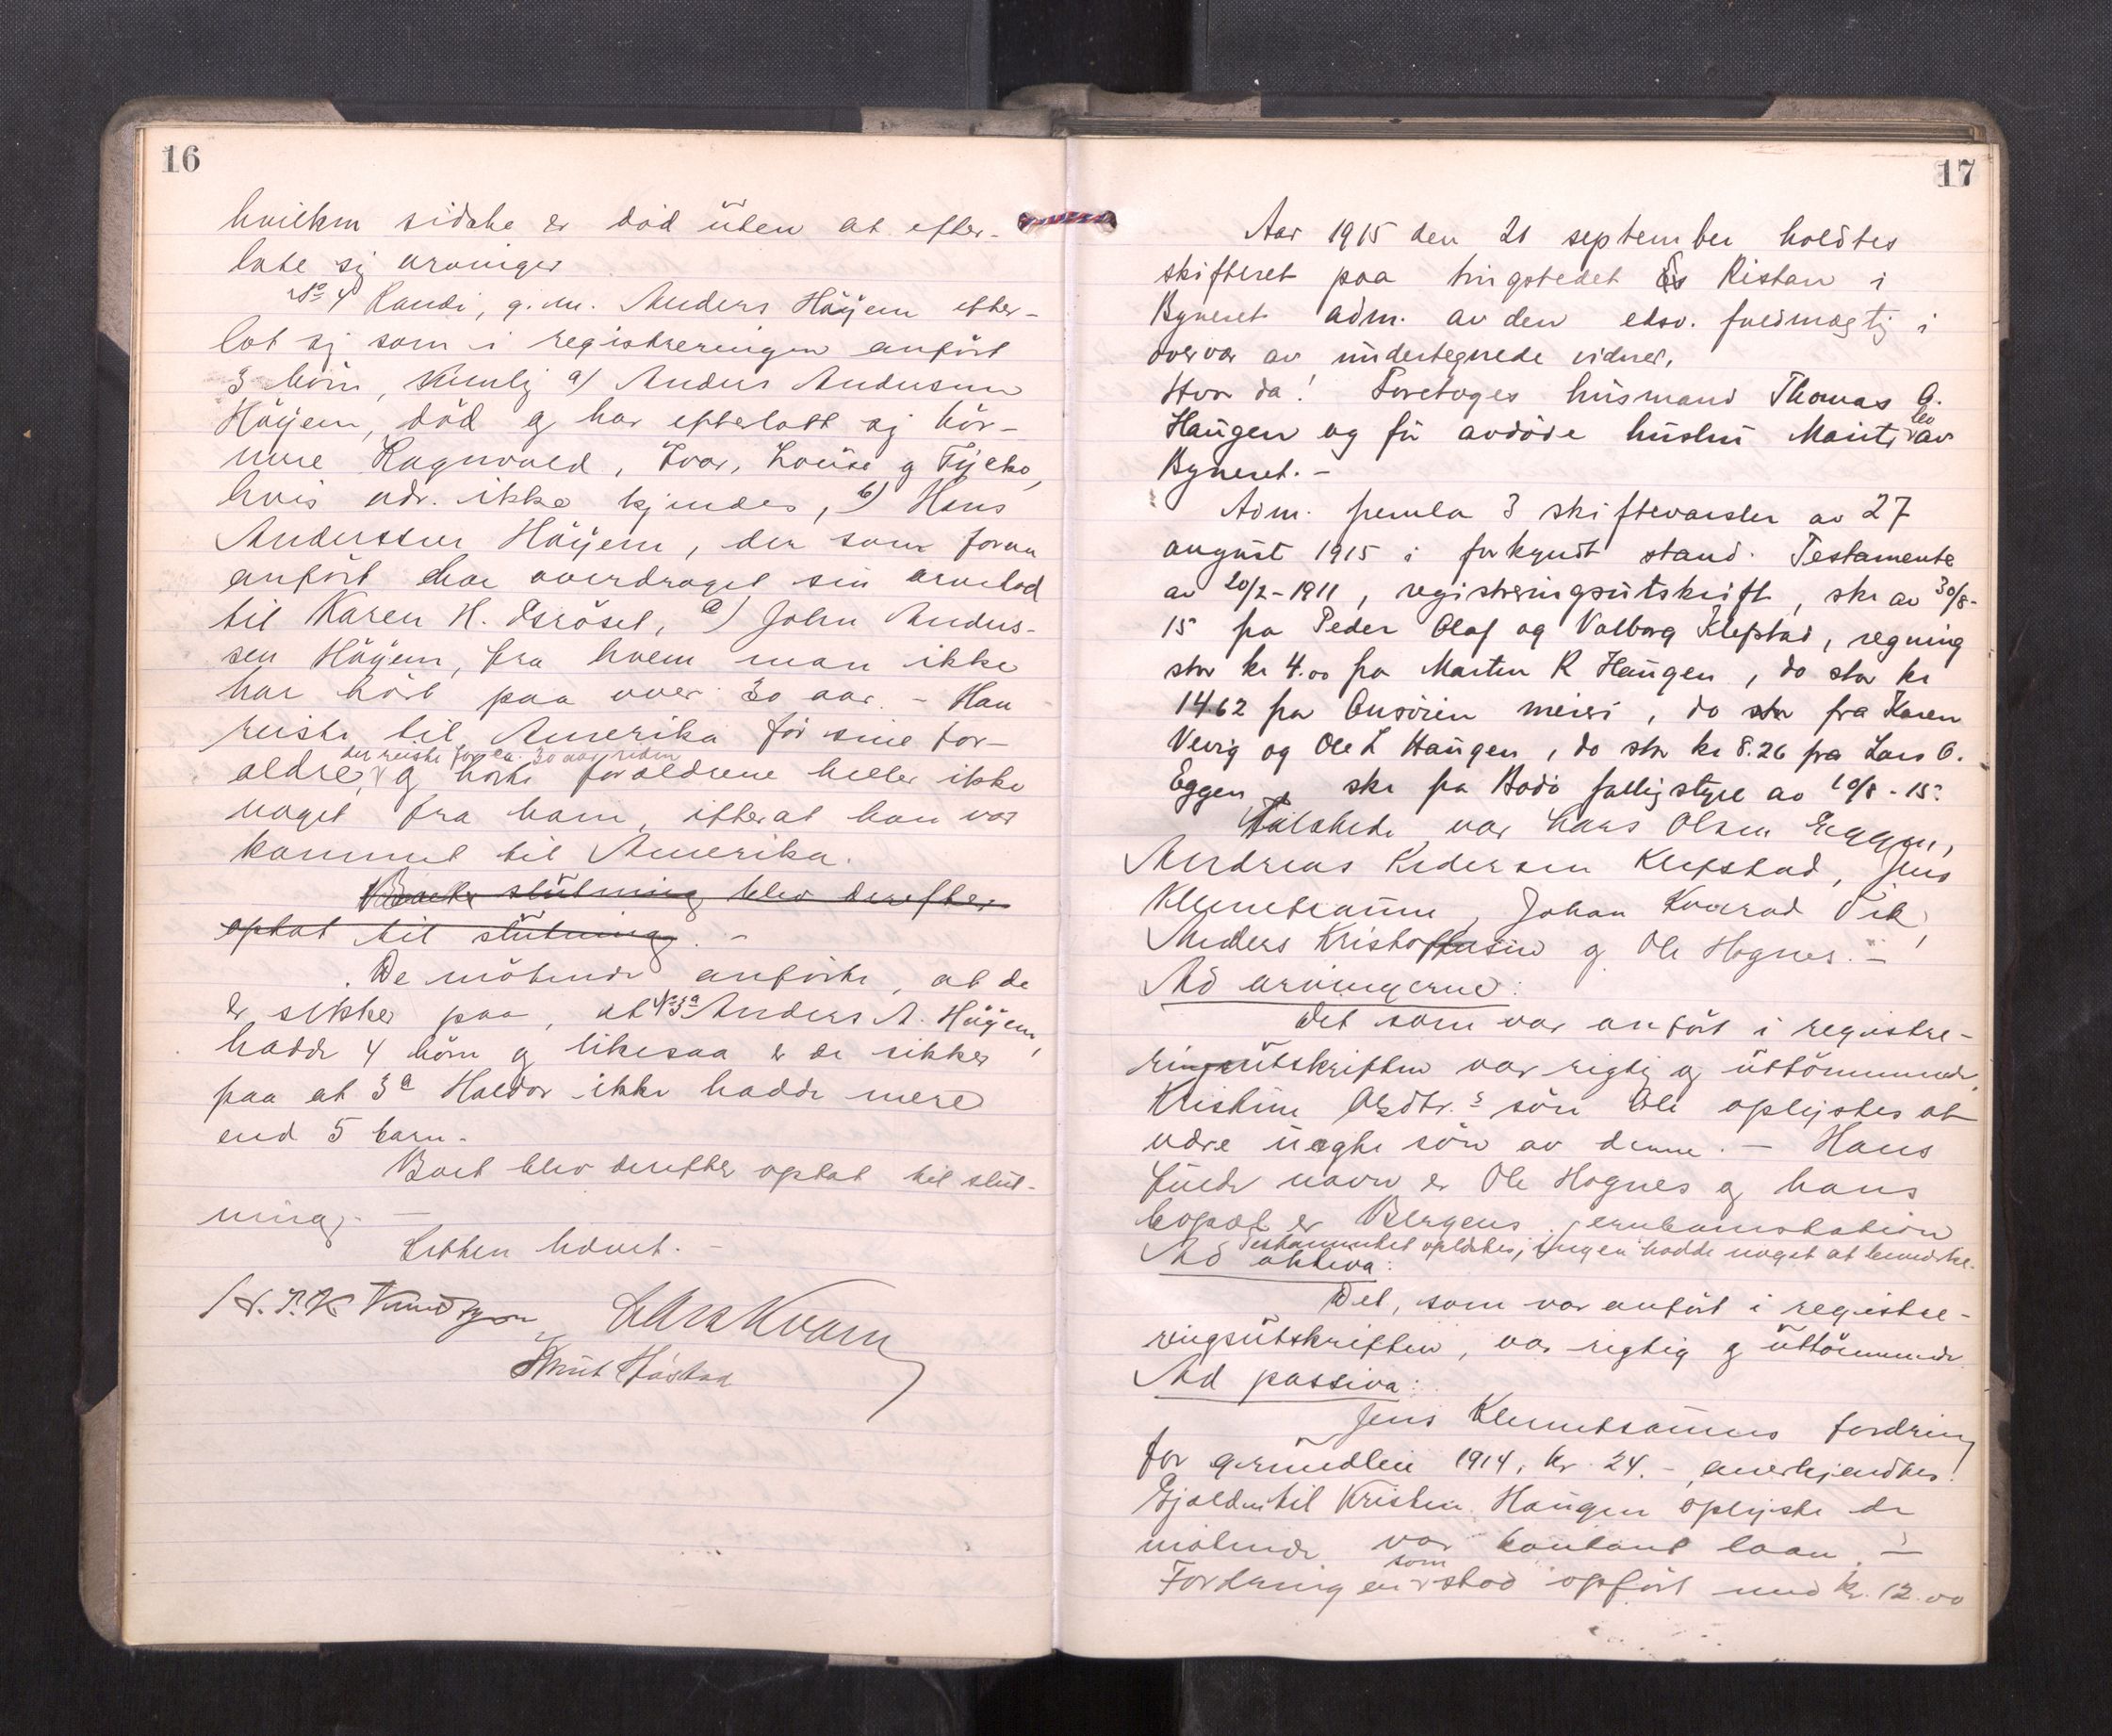 16
hvilken sidste er död uten at efter-
late sig arvinger
No 4 Randi, g. m. Anders Höyem efter-
lot sig som i registreringen anfört
3 börn, nemlig a) Anders Andersen
Höyem, död og har efterlatt sig bör-
nene Ragnvald, Ivar, Louise og Tycko,
hvis adr. ikke kjendes, b) Hans
Anderssen Höyem, der som foran
anfört har overdraget sin arvelod
til Karen H. Esrösel, c) John Anders-
sen Höyem, fra hvem man ikke
har hört paa over 30 aar. - Han
reiste til Amerika för sine for-
der reiste for ca. 30 aar siden
aldre, og hörte foraldrene heller ikke
noget fra ham, efterat han var
kommet til Amerika.
slutning blev derefter
optat til slutning. -
De mötende anförte, at de
er sikker paa, at No 3a Anders A. Höyem,
hadde 4 börn og likesaa er de sikker
paa at 3a Haldor ikke hadde mere
end 5 barn.
Boet blev derefter optat til slut-
ning. -
Retten hævet. -
H. P. K. Knudtzon Lars Kvam
Knut Håstad
17
Aar 1915 den 21 september holdtes
skifteret paa tingstedet Ristan i
Byneset adm. av den edsv. fuldmægtig i
overvær av undertegnede vidner,
Hvor da! Foretoges husmand Thomas O.
Haugen og før avdöde hustru Marits bo av
Byneset. -
Adm. fremla 3 skiftevarsler av 27
august 1915 i forkyndt stand. Testamente
av 20/2-1911, registreringsutskrift, skr av 30/8-
15 fra Peder Olaf og Valborg Klefstad, regning
stor kr 4.00 fra Martin R Haugen, do stor kr
14.62 fra Onsöien meieri, do fra Karen
Vevig og Ole L Haugen, do stor kr 8.26 fra Lars O.
Eggen, skr fra Bodö fattigstyre av 10/8-15.
Tilstede var Lars Olsen Eggen,
Andreas Pedersen Klefstad, Jens
Klemetsaunn, Johan Konrad Vik,
Anders Kristoffersen og Ole Hognes. -
Ad arvingerne:
Det som var anfört i registre-
ringsutskriften var rigtig og uttömmende.
Kristine Olsdtr.s sön Ole oplystes at
være uegte sön av denne. - Hans
fulde navn er Ole Hognes og hans
bopæl er Bergens jernbanestation
Testamentet oplæstes; ingen hadde noget at bemerke.
Ad aktiva:
Det, som var anfört i registre-
ringsutskriften, var rigtig og uttömmende
Ad passiva:
Jens Klemetsaunes fordring
for grundleie 1914, kr. 24.- anerkjendtes.
Gjælden til Kristen Haugen oplyste de
mötende var kontant laan. -
som
Fordringen stod opfört med kr. 12.00